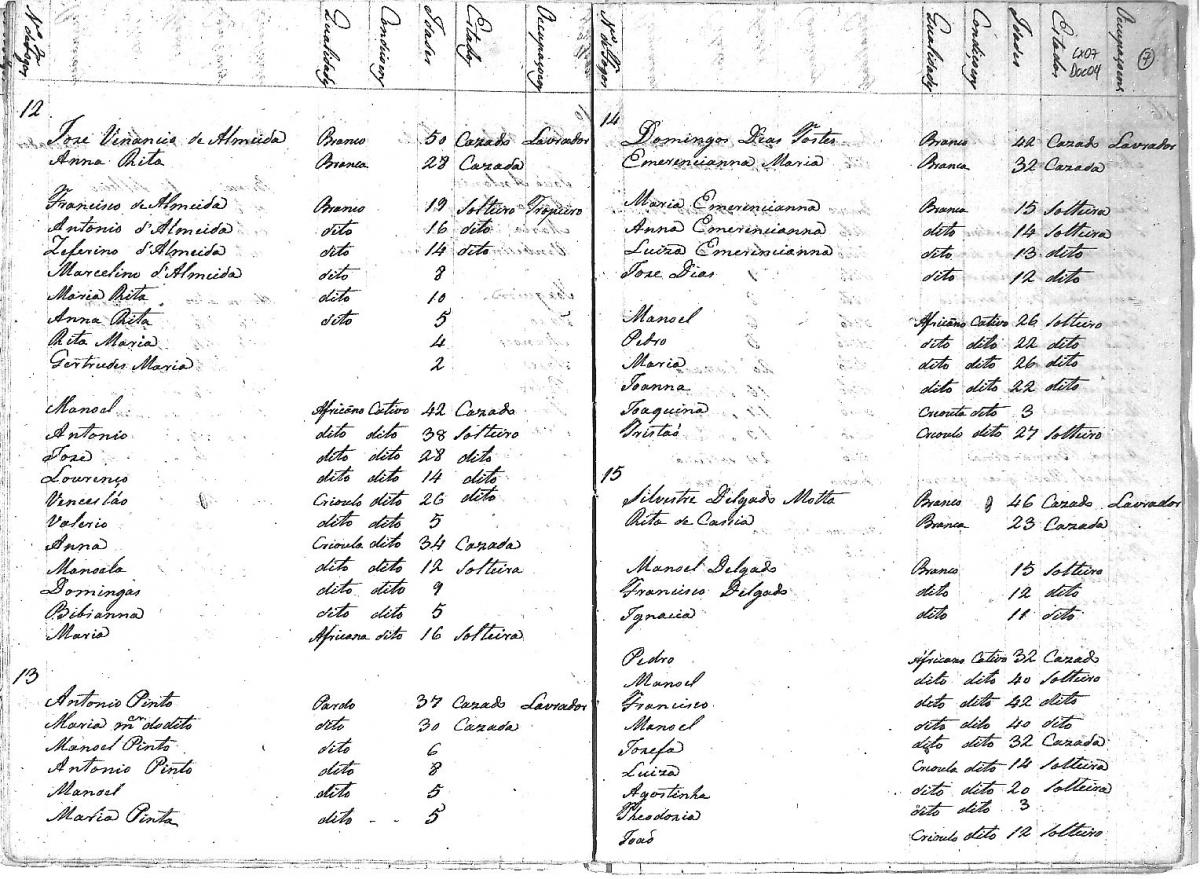 Nº de fogos Qualidade Condisoens Idades Estados Ocupaçoens
12
Joze Venancio de Almeida Branco 50 Cazado Lavrador
Anna Rita Branca 28 Cazada
Francisco de Almeida Branco 19 Solteiro Tropeiro
Antonio d'Almeida dito 16 dito
Zeferino d'Almeida dito 14 dito
Marcelino d'Almeida dito 8
Maria Rita dito 10
Anna Rita dito 5
Rita Maria 4
Gertrudes Maria 2
Manoel Africano Cativo 42 Cazado
Antonio dito dito 38 Solteiro
Joze dito dito 28 dito
Lourenço dito dito 14 dito
Venceslão Crioulo dito 26 dito
Valerio dito dito 5
Anna Crioula dito 34 Cazada
Manoela dito dito 12 Solteira
Domingas dito dito 9
Bibianna dito dito 5
Maria Africana dito 16 Solteira
13
Antonio Pinto Pardo 37 Cazado Lavrador
Maria mer do dito dito 30 Cazada
Manoel Pinto dito 6
Antonio Pinto dito 8
Manoel dito 5
Maria Pinta dito 5
Nº de Fogos Qualidade Condisoens Idades Estados Ocupaçoens
7
Cx07
Doc04
14
Domingos Dias Tostes Branco 42 Cazado Lavrador
Emerencianna Maria Branca 32 Cazada
Maria Emerencianna Branca 15 Solteira
Anna Emerencianna dito 14 Solteira
Luiza Emerencianna dito 13 dito
Joze Dias dito 12 dito
Manoel Africano Cativo 26 Solteiro
Pedro dito dito 22 dito
Maria dito dito 26 dito
Joanna dito dito 22 dito
Joaquina Crioula dito 3
Tristaõ Crioulo dito 27 Solteiro
15
Silvestre Delgado Motta Branco 46 Cazado Lavrador
Rita de Cassia Branca 23 Cazada
Manoel Delgado Branco 15 Solteiro
Francisco Delgado dito 12 dito
Ignacia dito 11 dito
Pedro Africano Cativo 32 Cazado
Manoel dito dito 40 Solteiro
Francisco dito dito 42 dito
Manoel dito dito 40 dito
Jozefa dito dito 32 Cazada
Luiza Crioula dito 14 Solteira
Agostinha dito dito 20 Solteira
Theodozia dito dito 3
Joaõ Crioulo dito 12 Solteiro